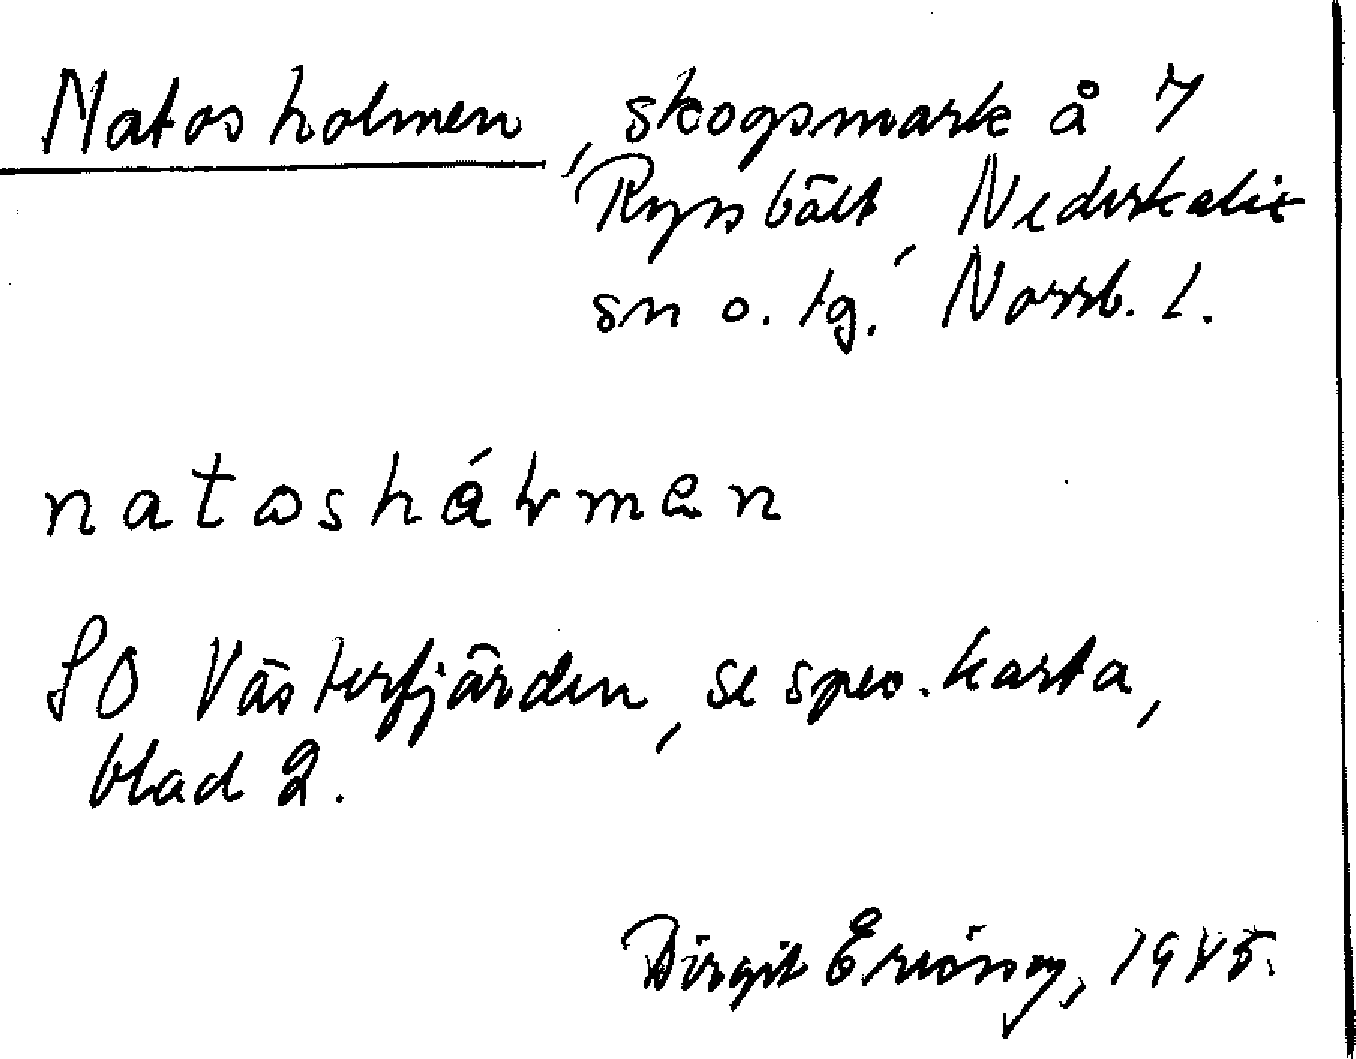 Natosholmen, skogsmark å 7
Rysbält, Nederkalix
sn o. tg. Norrb. l.
natoshálmen
SO Västerfjärden, se spec. karta,
blad 2.
Birgit 1945.